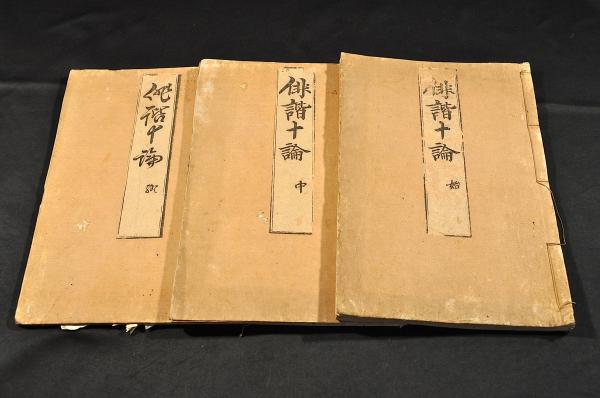 俳諧十論
始
俳諧十論
中
俳諧十論
終